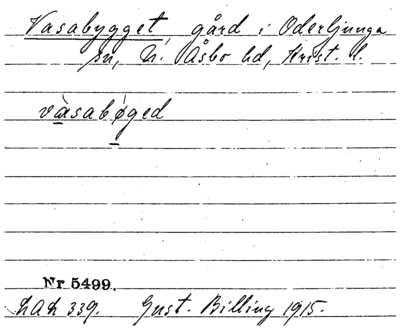 Vasabygget, gård i Oderljunga
sn, N. Åsbo hd, Krist. l.
vàsabǿged
Nr 5499.
LAL 339. Gust. Billing 1915.